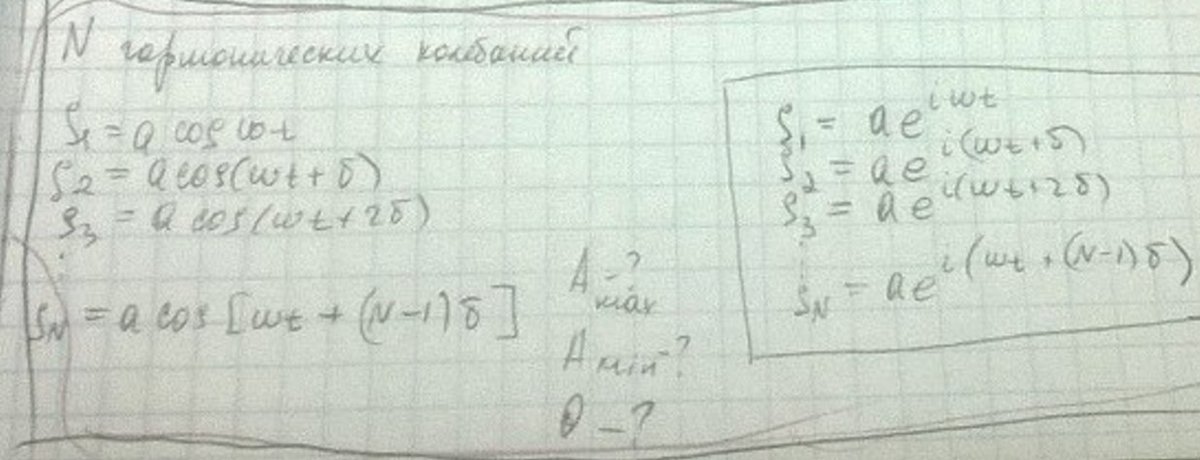 N гармонических колебаний
S₁ = a cos ωt
S₂ = a cos(ωt + δ)
S₃ = a cos(ωt + 2δ)
⋮
S_N = a cos [ωt + (N-1)δ]
A_max - ?
A_min - ?
θ - ?
S₁ = ae^{iωt}
S₂ = ae^{i(ωt+δ)}
S₃ = ae^{i(ωt+2δ)}
⋮
S_N = ae^{i(ωt+(N-1)δ)}